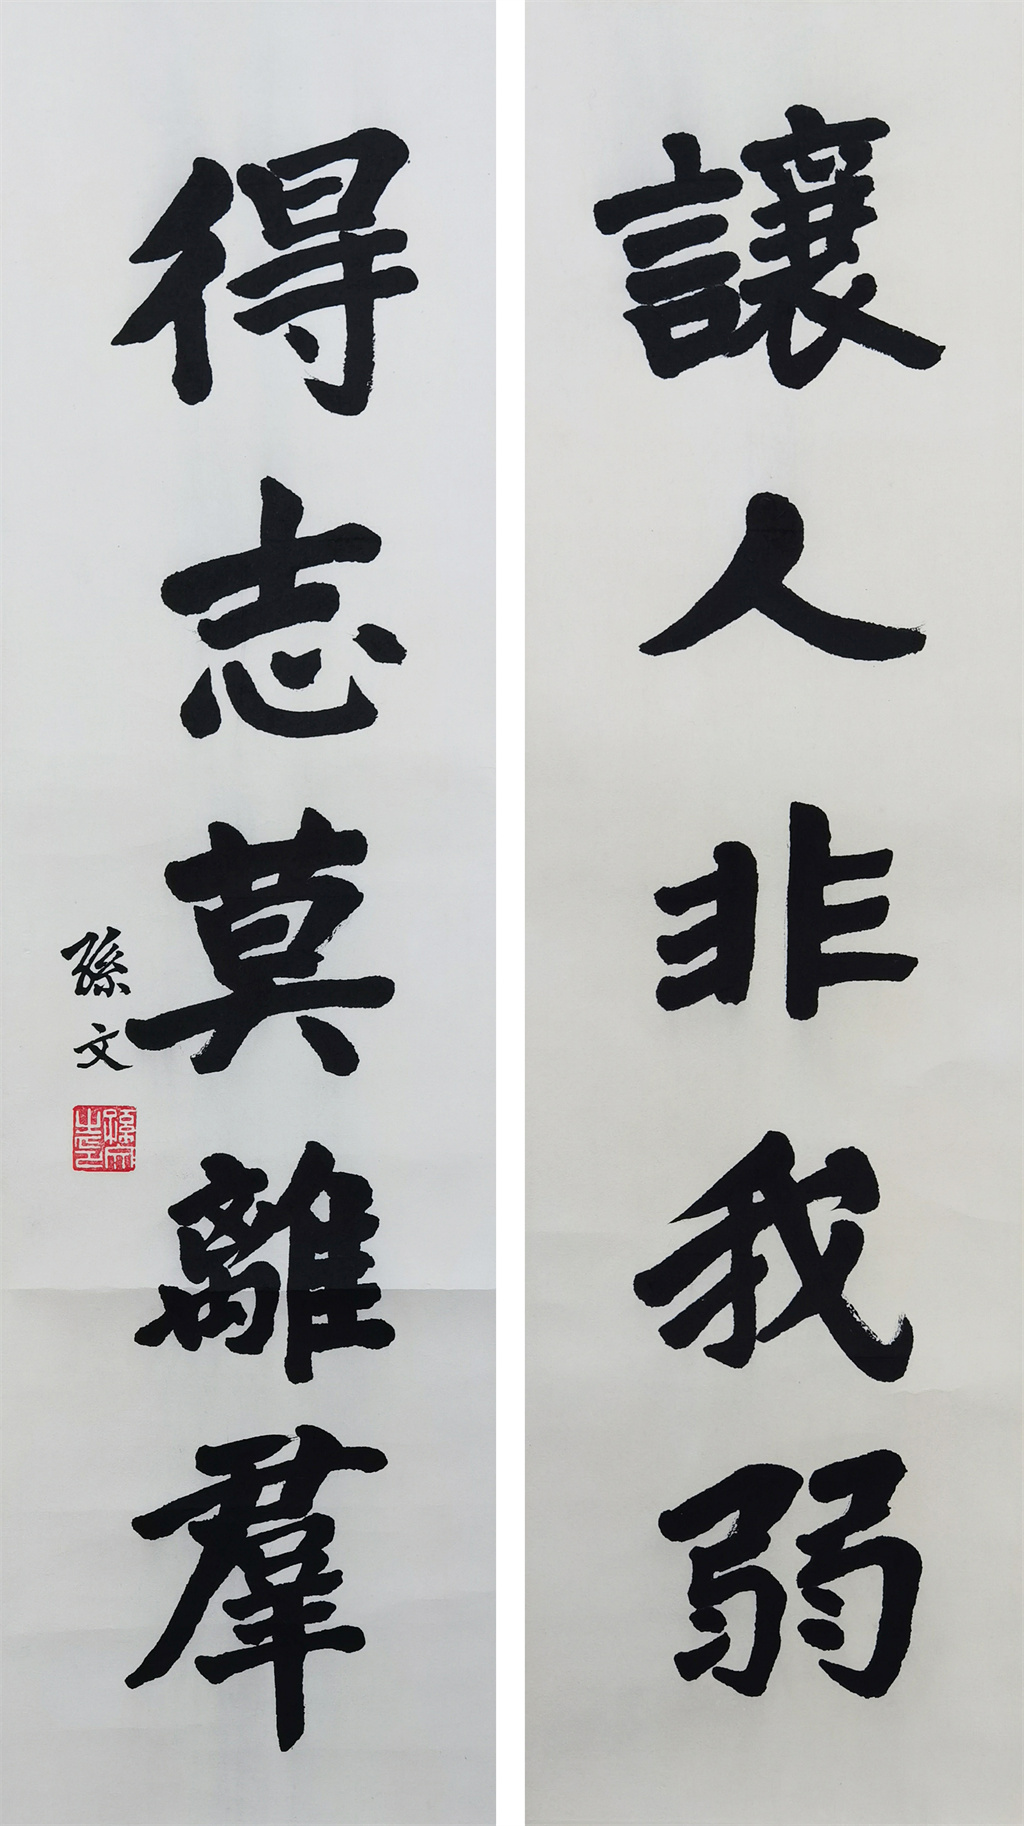 讓人非我弱
得志莫離羣
孫文